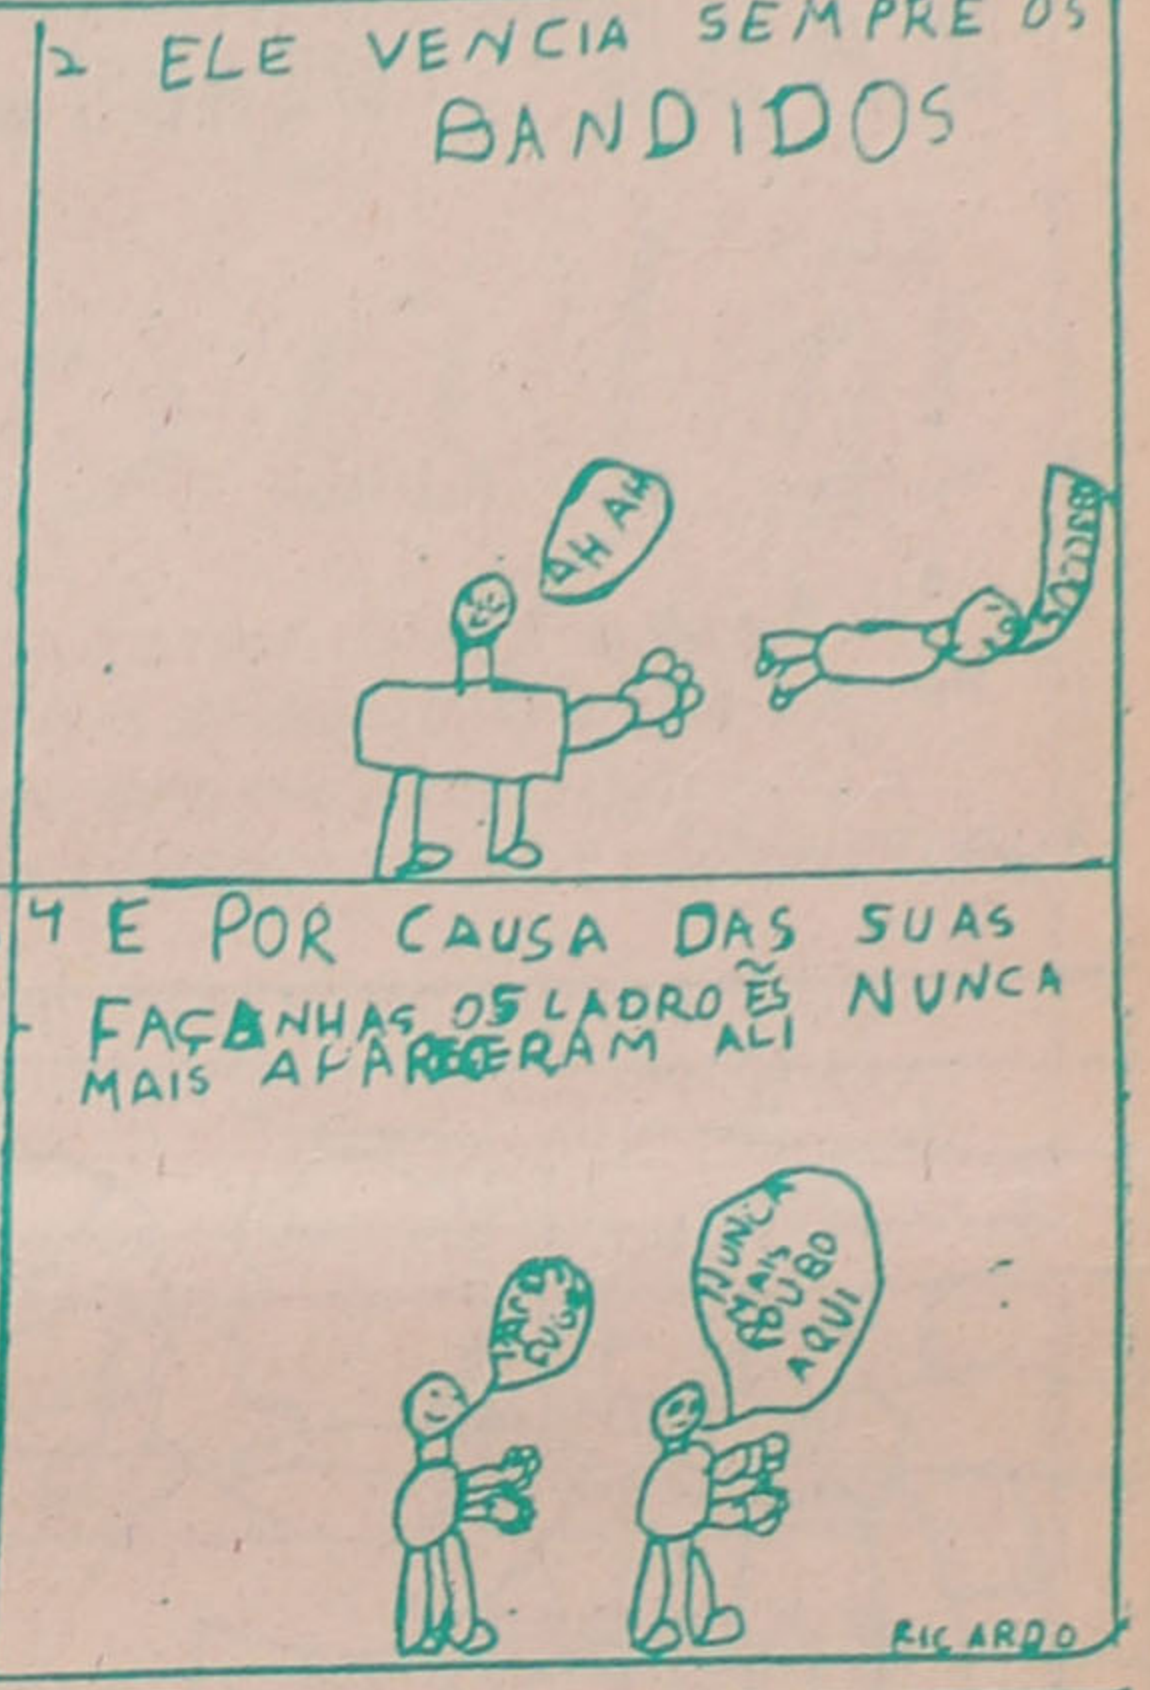 2 ELE VENCIA SEMPRE OS
BANDIDOS
AH AH
4 E POR CAUSA DAS SUAS
FAÇANHAS OS LADROES NUNCA
MAIS APARECERAM ALI
NUNCA
MAIS
ROUBO
AQUI
RICARDO